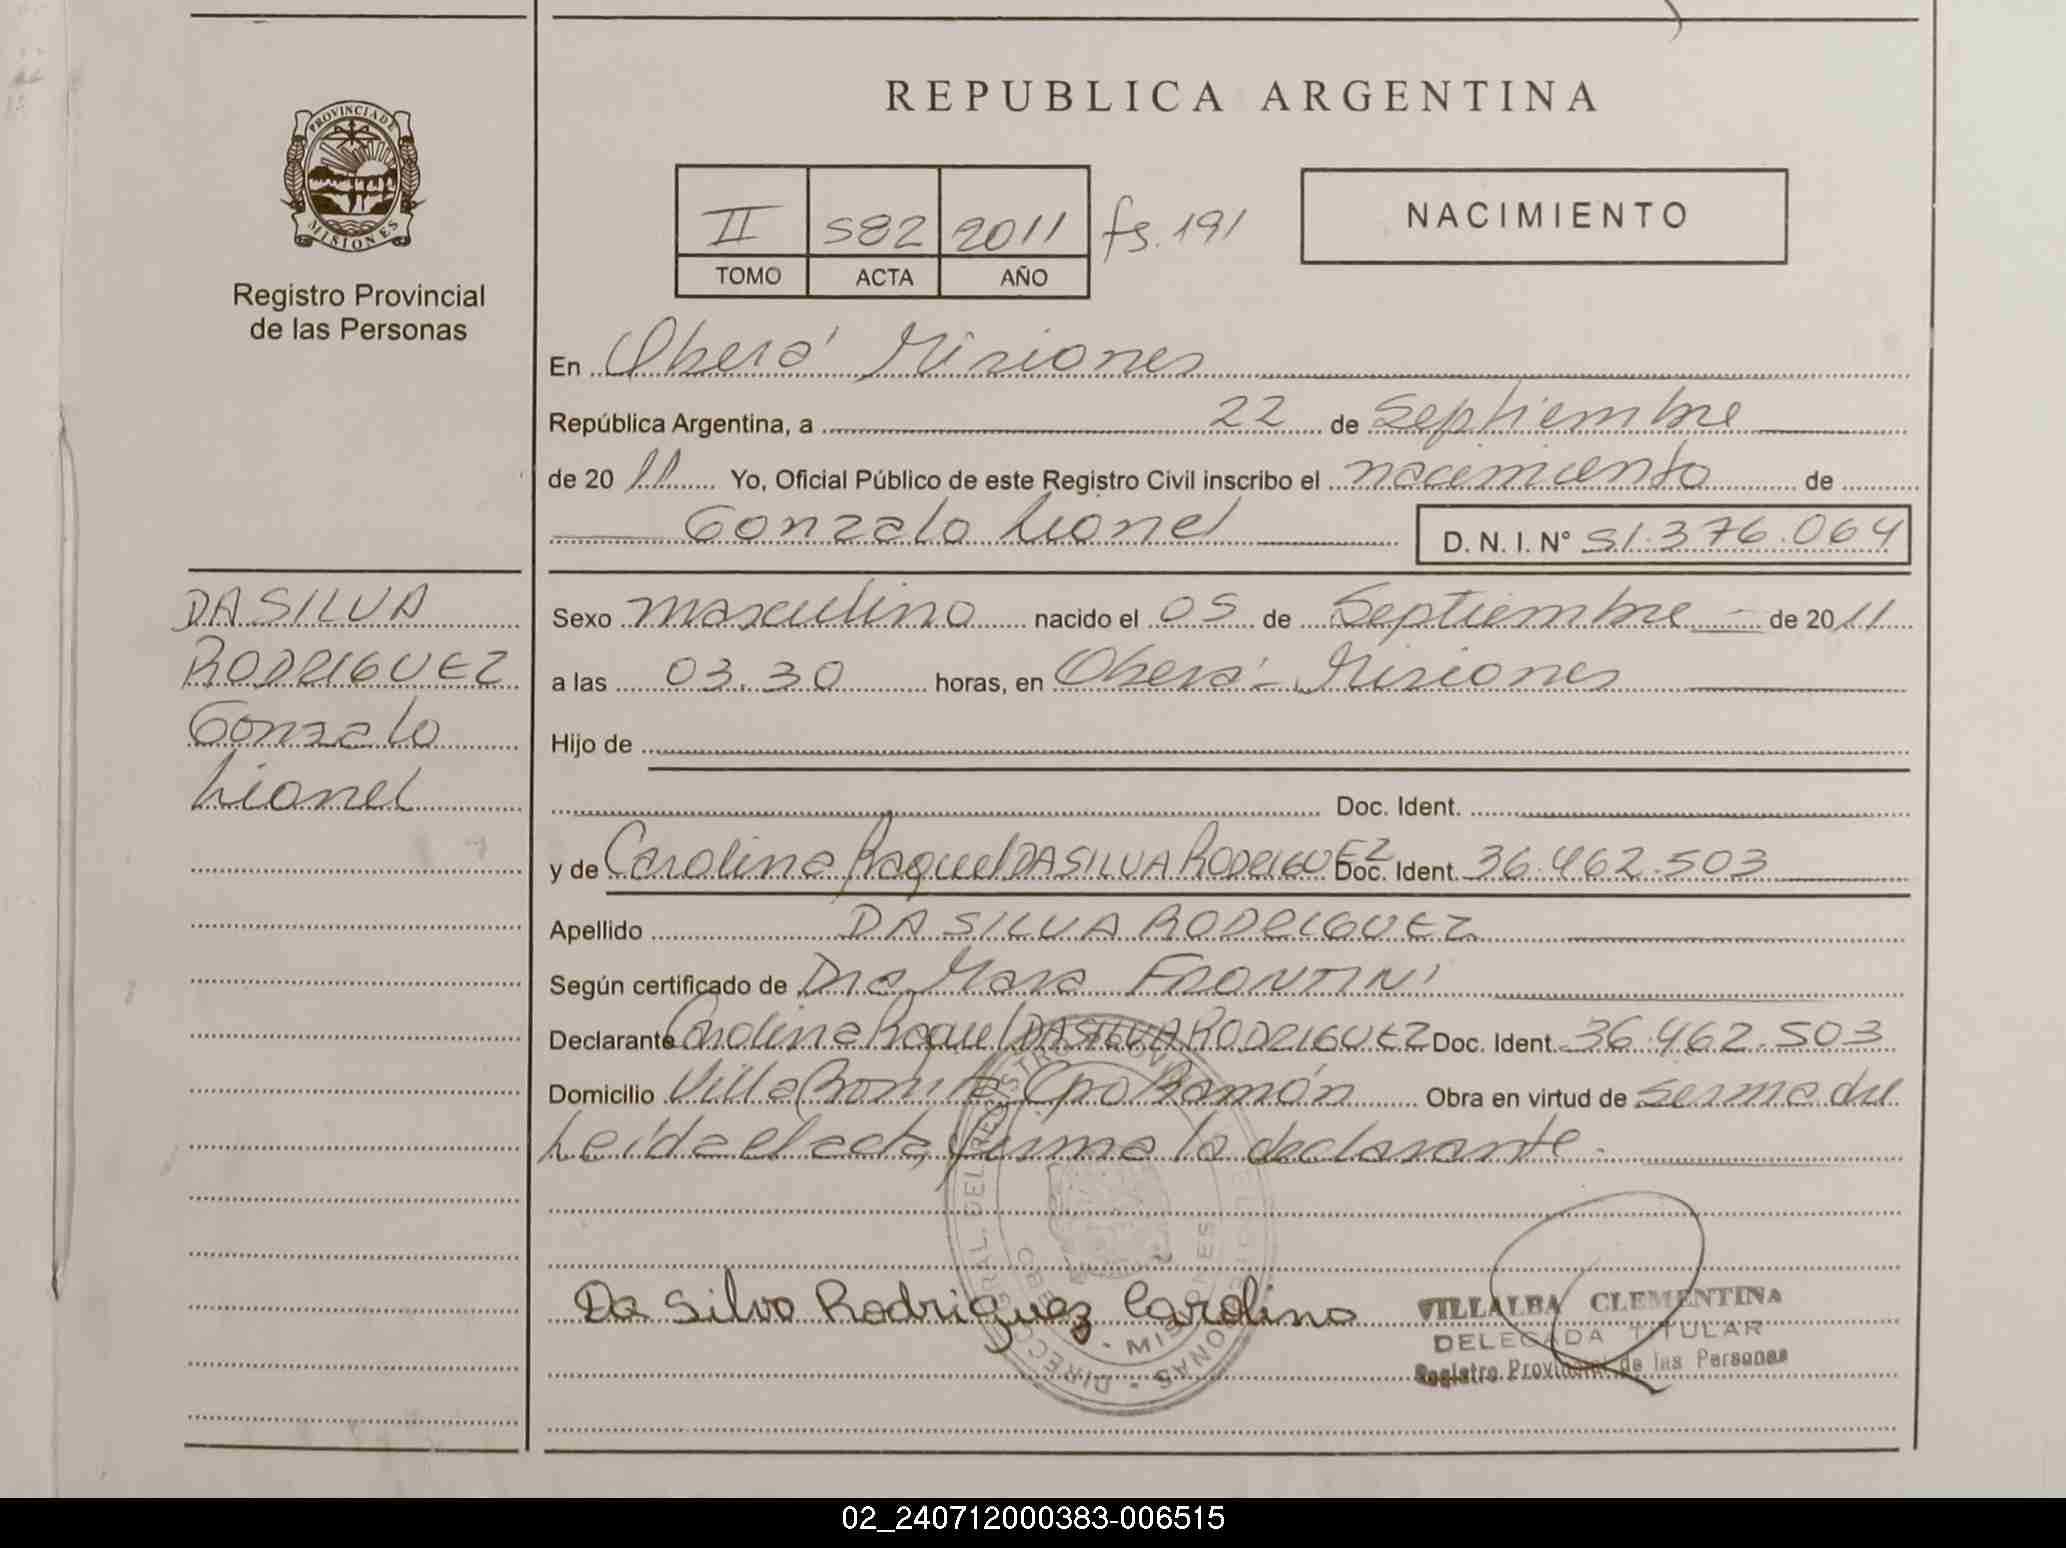 REPUBLICA ARGENTINA
PROVINCIA DE
MISIONES
Registro Provincial
de las Personas
II 582 2011 fs. 191
TOMO ACTA AÑO
NACIMIENTO
En Oberá Misiones
República Argentina, a 22 de Septiembre
de 20 11 Yo, Oficial Público de este Registro Civil inscribo el nacimiento de
Gonzalo Lionel D. N. I. N° 51.376.064
DA SILVA
RODRIGUEZ
Gonzalo
Lionel
Sexo masculino nacido el 05 de Septiembre de 20 11
a las 03.30 horas, en Oberá - Misiones
Hijo de
Doc. Ident.
y de Carolina Raquel DA SILVA RODRIGUEZ Doc. Ident. 36.462.503
Apellido DA SILVA RODRIGUEZ
Según certificado de Dra Mara FRONTINI
Declarante Carolina Raquel DA SILVA RODRIGUEZ Doc. Ident. 36.462.503
Domicilio Villa Bonita Cpo Ramón Obra en virtud de ser madre
Leída el acta, firma la declarante.
Da Silva Rodriguez Carolina
VILLALBA CLEMENTINA
DELEGADA TITULAR
Registro Provincial de las Personas
MISIONES
02_240712000383-006515